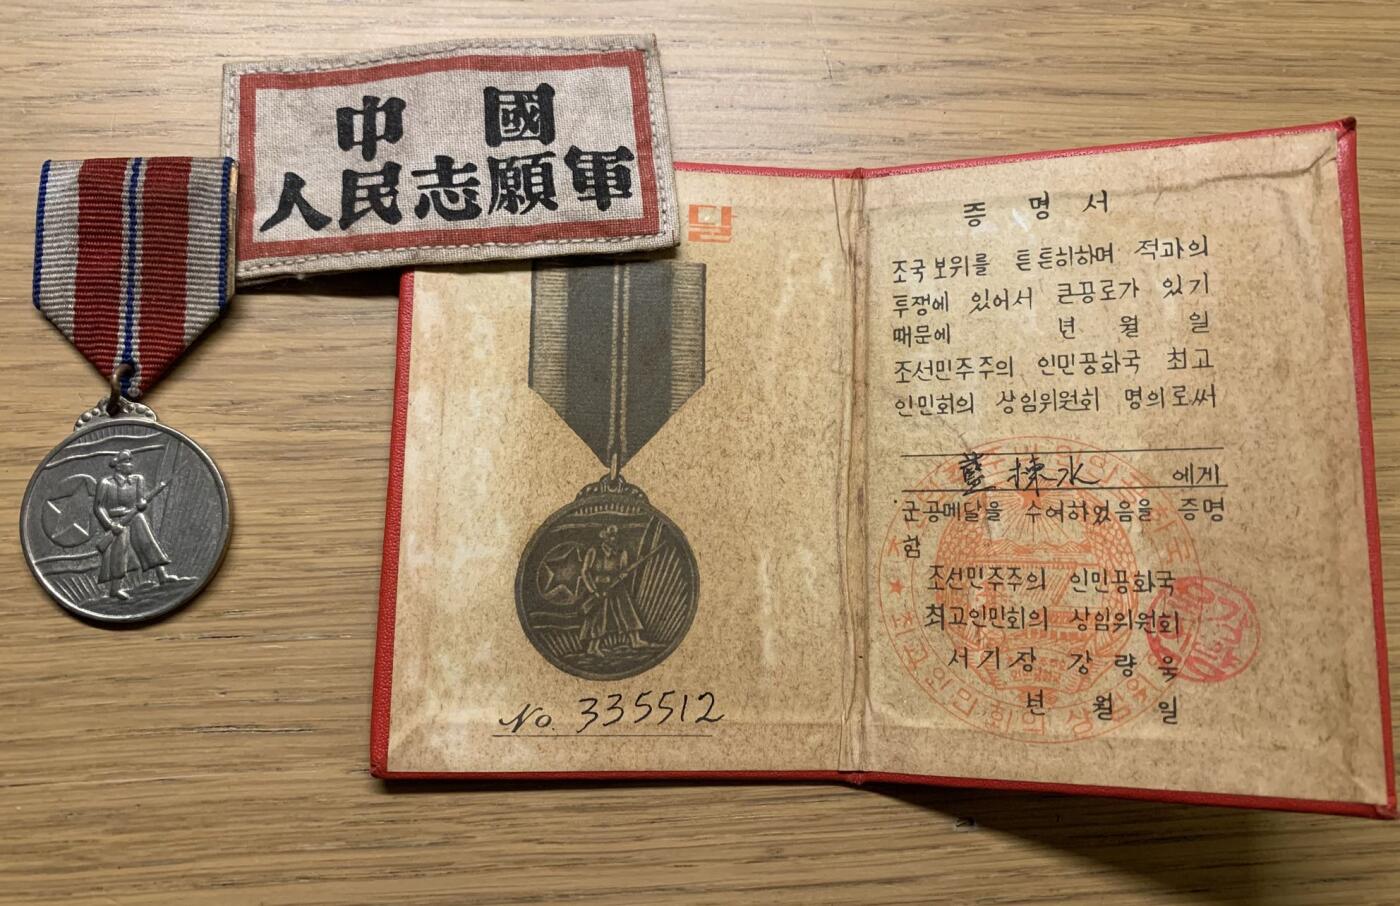 中 國
人民志願軍
달
No. 335512
증 명 서
조국보위를 튼튼히하며 적과의
투쟁에 있어서 큰공로가 있기
때문에 년 월 일
조선민주주의 인민공화국 최고
인민회의 상임위원회 명의로써
藍拣水 에게
군공메달을 수여하였음을 증명
함
조선민주주의 인민공화국
최고인민회의 상임위원회
서기장 강량욱
년 월 일